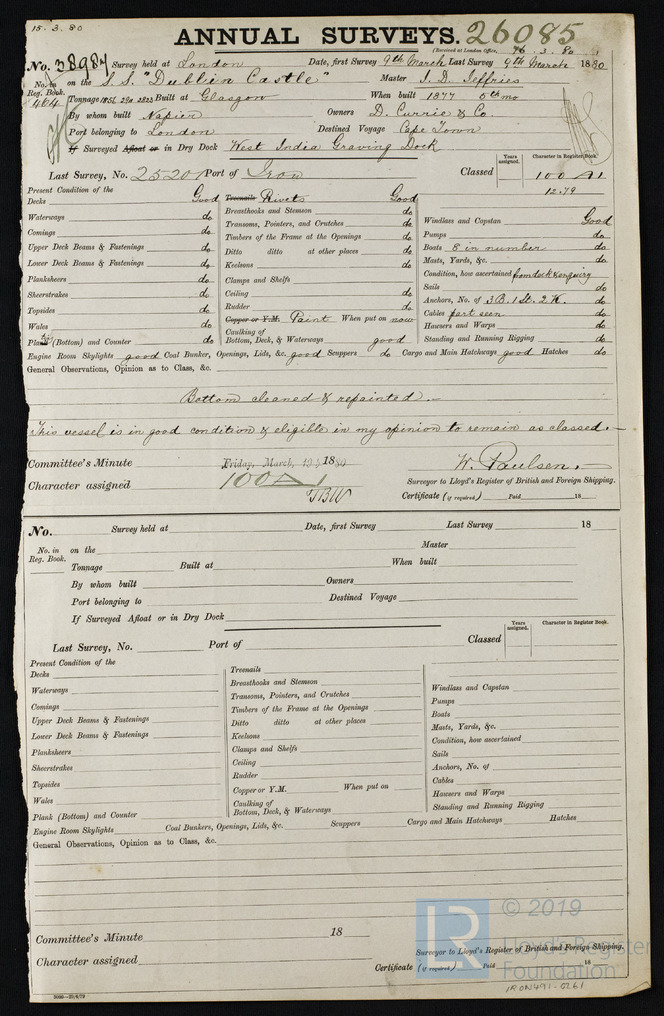 15.3.80
ANNUAL SURVEYS. 26085
(Received at London Office, 3.80
No. 38987 Survey held at London Date, first Survey 9th March Last Survey 9th March 1880
No. in Reg. Book. on the S.S. "Dublin Castle" Master J. D. Jeffries
464 Tonnage Built at Glasgow When built 1877 5th mo
By whom built Napier Owners D. Currie & Co.
Port belonging to London Destined Voyage Cape Town
If Surveyed Afloat or in Dry Dock West India Graving Dock
Years assigned. Character in Register Book.
Last Survey, No. 25201 Port of Iron Classed 100 A1
12.79
Present Condition of the
Decks Good Treenails Rivets Good
Waterways do Breasthooks and Stemson do Windlass and Capstan Good
Comings do Transoms, Pointers, and Crutches do Pumps do
Upper Deck Beams & Fastenings do Timbers of the Frame at the Openings do Boats 8 in number do
Lower Deck Beams & Fastenings do Ditto ditto at other places do Masts, Yards, &c. do
Planksheers do Keelsons do Condition, how ascertained from deck & enquiry
Sheerstrakes do Clamps and Shelfs Sails do
Topsides do Ceiling do Anchors, No. of 3 B. 1 St. 2 K. do
Wales do Rudder do Cables part seen do
Copper or Y.M. Paint When put on now Hawsers and Warps do
Plank (Bottom) and Counter do Caulking of Bottom, Deck, & Waterways good Standing and Running Rigging do
Engine Room Skylights good Coal Bunker, Openings, Lids, &c. good Scuppers do Cargo and Main Hatchways good Hatches do
General Observations, Opinion as to Class, &c.
Bottom cleaned & repainted.—
This vessel is in good condition & eligible in my opinion to remain as classed.—
Committee's Minute Friday, March, 19, 1880 W. Paulsen.
Character assigned 100 A1 Surveyor to Lloyd's Register of British and Foreign Shipping.
Certificate (if required) Paid 18
No. Survey held at Date, first Survey Last Survey 18
No. in Reg. Book. on the Master
Tonnage Built at When built
By whom built Owners
Port belonging to Destined Voyage
If Surveyed Afloat or in Dry Dock
Years assigned. Character in Register Book.
Last Survey, No. Port of Classed
Present Condition of the
Decks Treenails
Waterways Breasthooks and Stemson Windlass and Capstan
Comings Transoms, Pointers, and Crutches Pumps
Upper Deck Beams & Fastenings Timbers of the Frame at the Openings Boats
Lower Deck Beams & Fastenings Ditto ditto at other places Masts, Yards, &c.
Planksheers Keelsons Condition, how ascertained
Sheerstrakes Clamps and Shelfs Sails
Topsides Ceiling Anchors, No. of
Wales Rudder Cables
Copper or Y.M. When put on Hawsers and Warps
Plank (Bottom) and Counter Caulking of Bottom, Deck, & Waterways Standing and Running Rigging
Engine Room Skylights Coal Bunkers, Openings, Lids, &c. Scuppers Cargo and Main Hatchways Hatches
General Observations, Opinion as to Class, &c.
Committee's Minute 18
Character assigned Surveyor to Lloyd's Register of British and Foreign Shipping.
Certificate (if required) Paid 18
LR © 2019
Lloyd's Register
Foundation
IRON491-0261